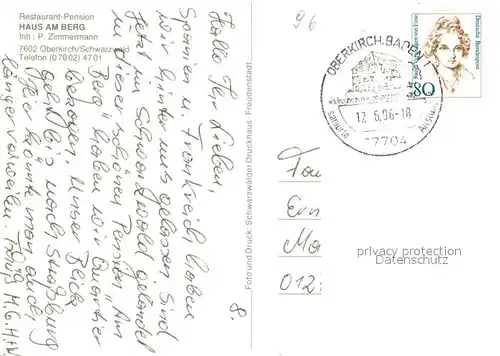 Restaurant-Pension
HAUS AM BERG
Inh.: P. Zimmermann
7602 Oberkirch/Schwarzwald
Telefon (07802) 4701
Hallo Ihr Lieben,
Spanien u. Frankreich haben
wir hinter uns gelassen. Sind
jetzt im Schwarzwald gelandet
In dieser schönen Pension "Am
Berg" haben wir Quartier
bezogen. Unser Blick
geht bis nach Straßburg
Hier könnte man auch
länger verweilen. Gruß H.
8.
Foto und Druck: Schwarzwälder Druckhaus, Freudenstadt
96
OBERKIRCH, BADEN 1
17.6.96-18
77704
Deutsche Bundespost
80
Fam
Ern
Ma
012
privacy protection
Datenschutz